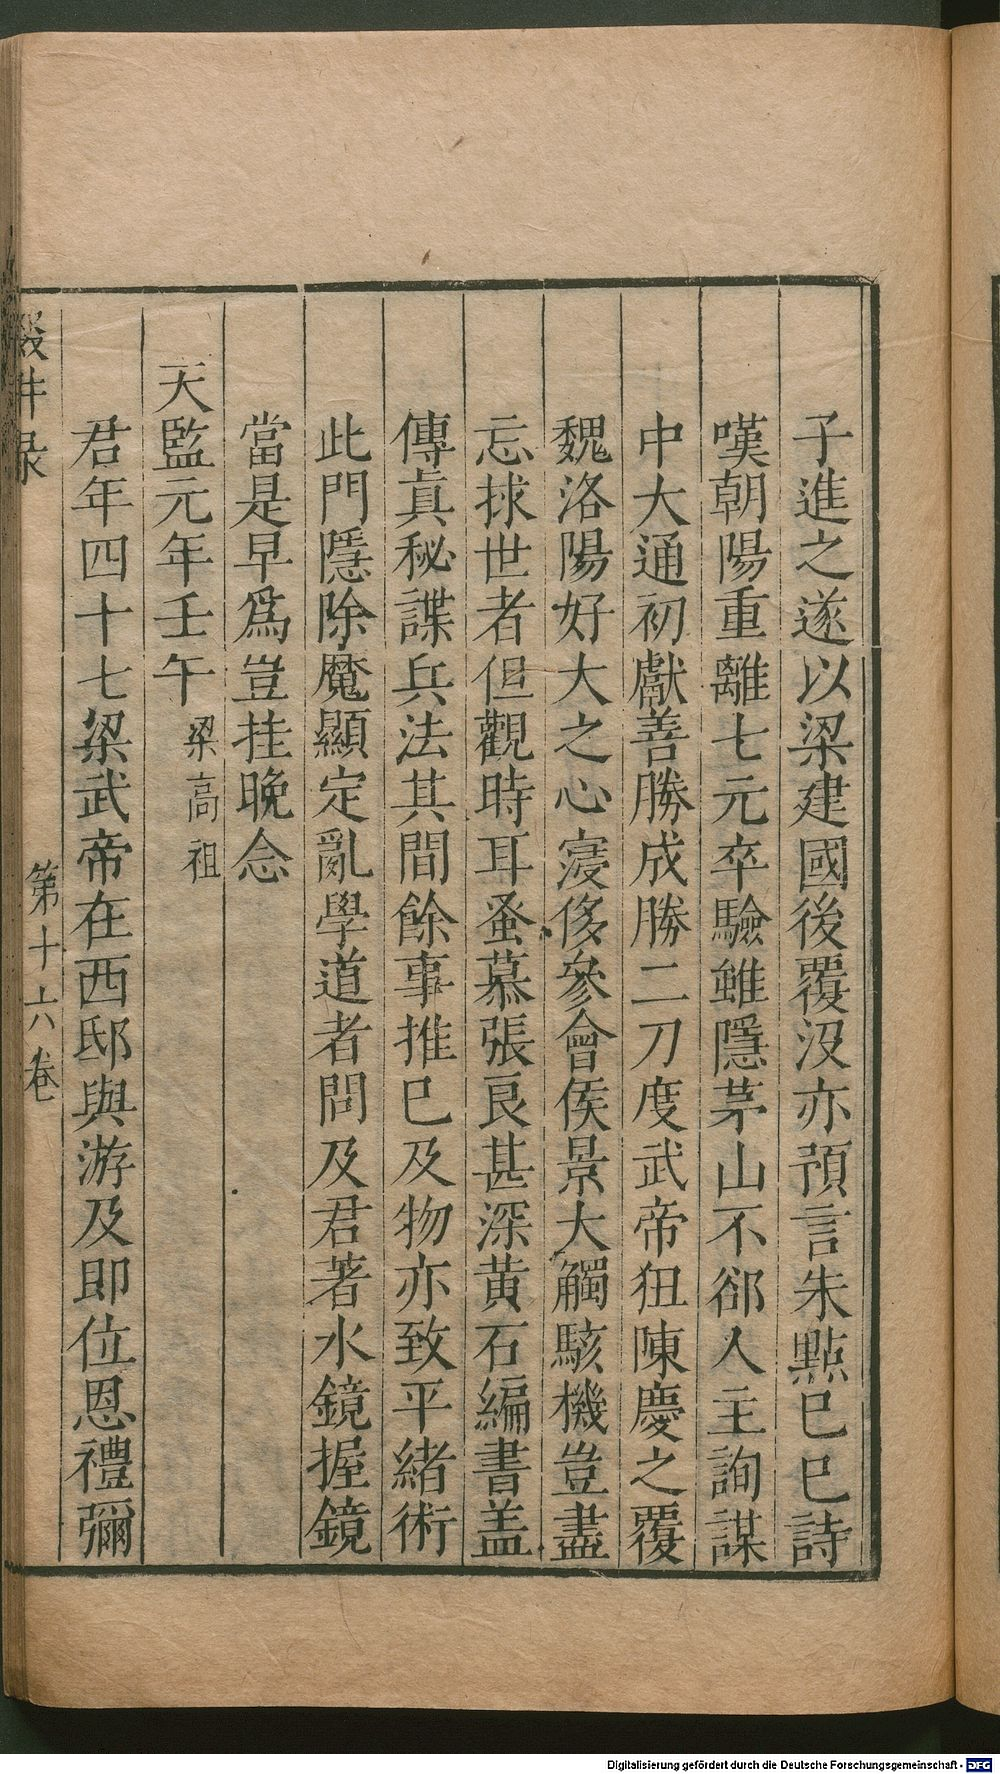 子進之遂以梁建國後覆没亦預言朱點巳巳詩
嘆朝陽重離七元卒驗雖隱茅山不郤人主詢謀
中大通初獻善勝成勝二刀度武帝狃陳慶之覆
魏洛陽好大之心寖侈參會侯景大觸駭機豈盡
忘捄世者但觀時耳蚤慕張良甚深黄石編書盖
傳眞秘諜兵法其間餘事推巳及物亦致平緒術
此門隱除魔顯定亂學道者問及君著水鏡握鏡
當是早爲豈挂晚念
天監元年壬午梁高祖
君年四十七梁武帝在西邸與游及即位恩禮彌
第十六卷
Digitalisierung gefördert durch die Deutsche Forschungsgemeinschaft - DFG